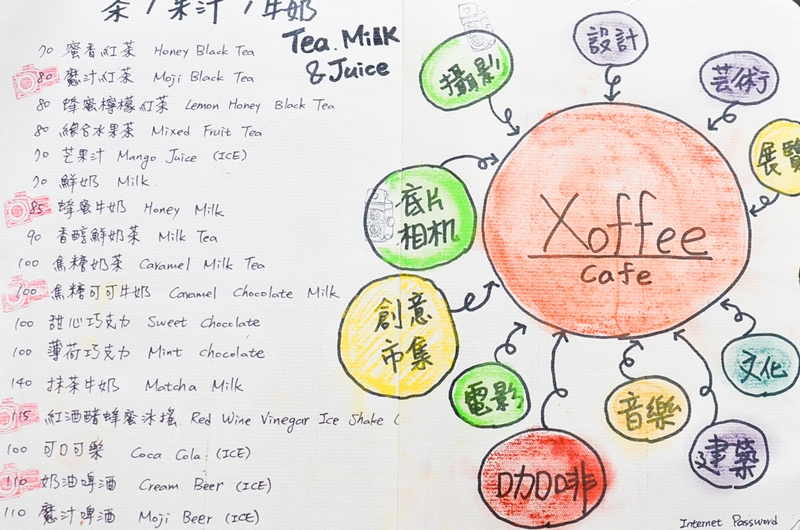 茶/果汁/牛奶
Tea. Milk
& Juice
70 蜜香紅茶 Honey Black Tea
80 魔汁紅茶 Moji Black Tea
80 蜂蜜檸檬紅茶 Lemon Honey Black Tea
80 綜合水果茶 Mixed Fruit Tea
70 芒果汁 Mango Juice (ICE)
70 鮮奶 Milk
85 蜂蜜牛奶 Honey Milk
90 香醇鮮奶茶 Milk Tea
100 焦糖奶茶 Caramel Milk Tea
100 焦糖可可牛奶 Caramel Chocolate Milk
100 甜心巧克力 Sweet Chocolate
100 薄荷巧克力 Mint chocolate
140 抹茶牛奶 Matcha Milk
115 紅酒醋蜂蜜冰搖 Red Wine Vinegar Ice Shake (
100 可口可樂 Coca Cola (ICE)
110 奶油啤酒 Cream Beer (ICE)
110 魔汁啤酒 Moji Beer (ICE)
設計
攝影
芸術
展覽
底片
相机
Xoffee
Cafe
創意
市集
文化
電影
音樂
建築
咖啡
Internet Password